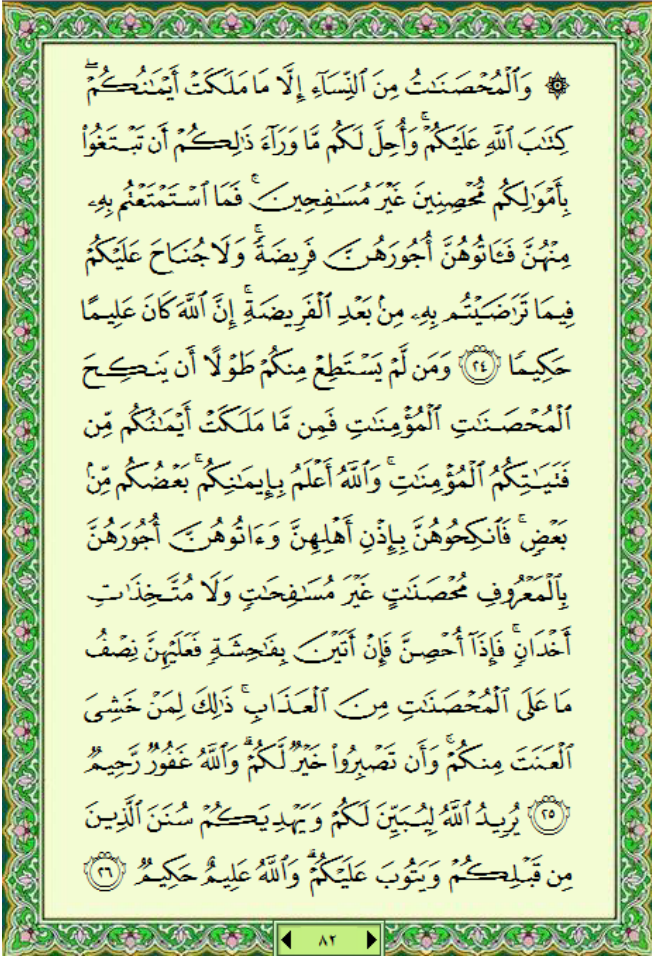 ۞ وَٱلْمُحْصَنَـٰتُ مِنَ ٱلنِّسَآءِ إِلَّا مَا مَلَكَتْ أَيْمَـٰنُكُمْ ۖ
كِتَـٰبَ ٱللَّهِ عَلَيْكُمْ ۚ وَأُحِلَّ لَكُم مَّا وَرَآءَ ذَٰلِكُمْ أَن تَبْتَغُوا۟
بِأَمْوَٰلِكُم مُّحْصِنِينَ غَيْرَ مُسَـٰفِحِينَ ۚ فَمَا ٱسْتَمْتَعْتُم بِهِۦ
مِنْهُنَّ فَـَٔاتُوهُنَّ أُجُورَهُنَّ فَرِيضَةً ۚ وَلَا جُنَاحَ عَلَيْكُمْ
فِيمَا تَرَٰضَيْتُم بِهِۦ مِنۢ بَعْدِ ٱلْفَرِيضَةِ ۚ إِنَّ ٱللَّهَ كَانَ عَلِيمًا
حَكِيمًا ٢٤ وَمَن لَّمْ يَسْتَطِعْ مِنكُمْ طَوْلًا أَن يَنكِحَ
ٱلْمُحْصَنَـٰتِ ٱلْمُؤْمِنَـٰتِ فَمِن مَّا مَلَكَتْ أَيْمَـٰنُكُم مِّن
فَتَيَـٰتِكُمُ ٱلْمُؤْمِنَـٰتِ ۚ وَٱللَّهُ أَعْلَمُ بِإِيمَـٰنِكُم ۚ بَعْضُكُم مِّنۢ
بَعْضٍ ۚ فَٱنكِحُوهُنَّ بِإِذْنِ أَهْلِهِنَّ وَءَاتُوهُنَّ أُجُورَهُنَّ
بِٱلْمَعْرُوفِ مُحْصَنَـٰتٍ غَيْرَ مُسَـٰفِحَـٰتٍ وَلَا مُتَّخِذَٰتِ
أَخْدَانٍ ۚ فَإِذَآ أُحْصِنَّ فَإِنْ أَتَيْنَ بِفَـٰحِشَةٍ فَعَلَيْهِنَّ نِصْفُ
مَا عَلَى ٱلْمُحْصَنَـٰتِ مِنَ ٱلْعَذَابِ ۚ ذَٰلِكَ لِمَنْ خَشِىَ
ٱلْعَنَتَ مِنكُمْ ۚ وَأَن تَصْبِرُوا۟ خَيْرٌ لَّكُمْ ۗ وَٱللَّهُ غَفُورٌ رَّحِيمٌ
٢٥ يُرِيدُ ٱللَّهُ لِيُبَيِّنَ لَكُمْ وَيَهْدِيَكُمْ سُنَنَ ٱلَّذِينَ
مِن قَبْلِكُمْ وَيَتُوبَ عَلَيْكُمْ ۗ وَٱللَّهُ عَلِيمٌ حَكِيمٌ ٢٦
٨٢